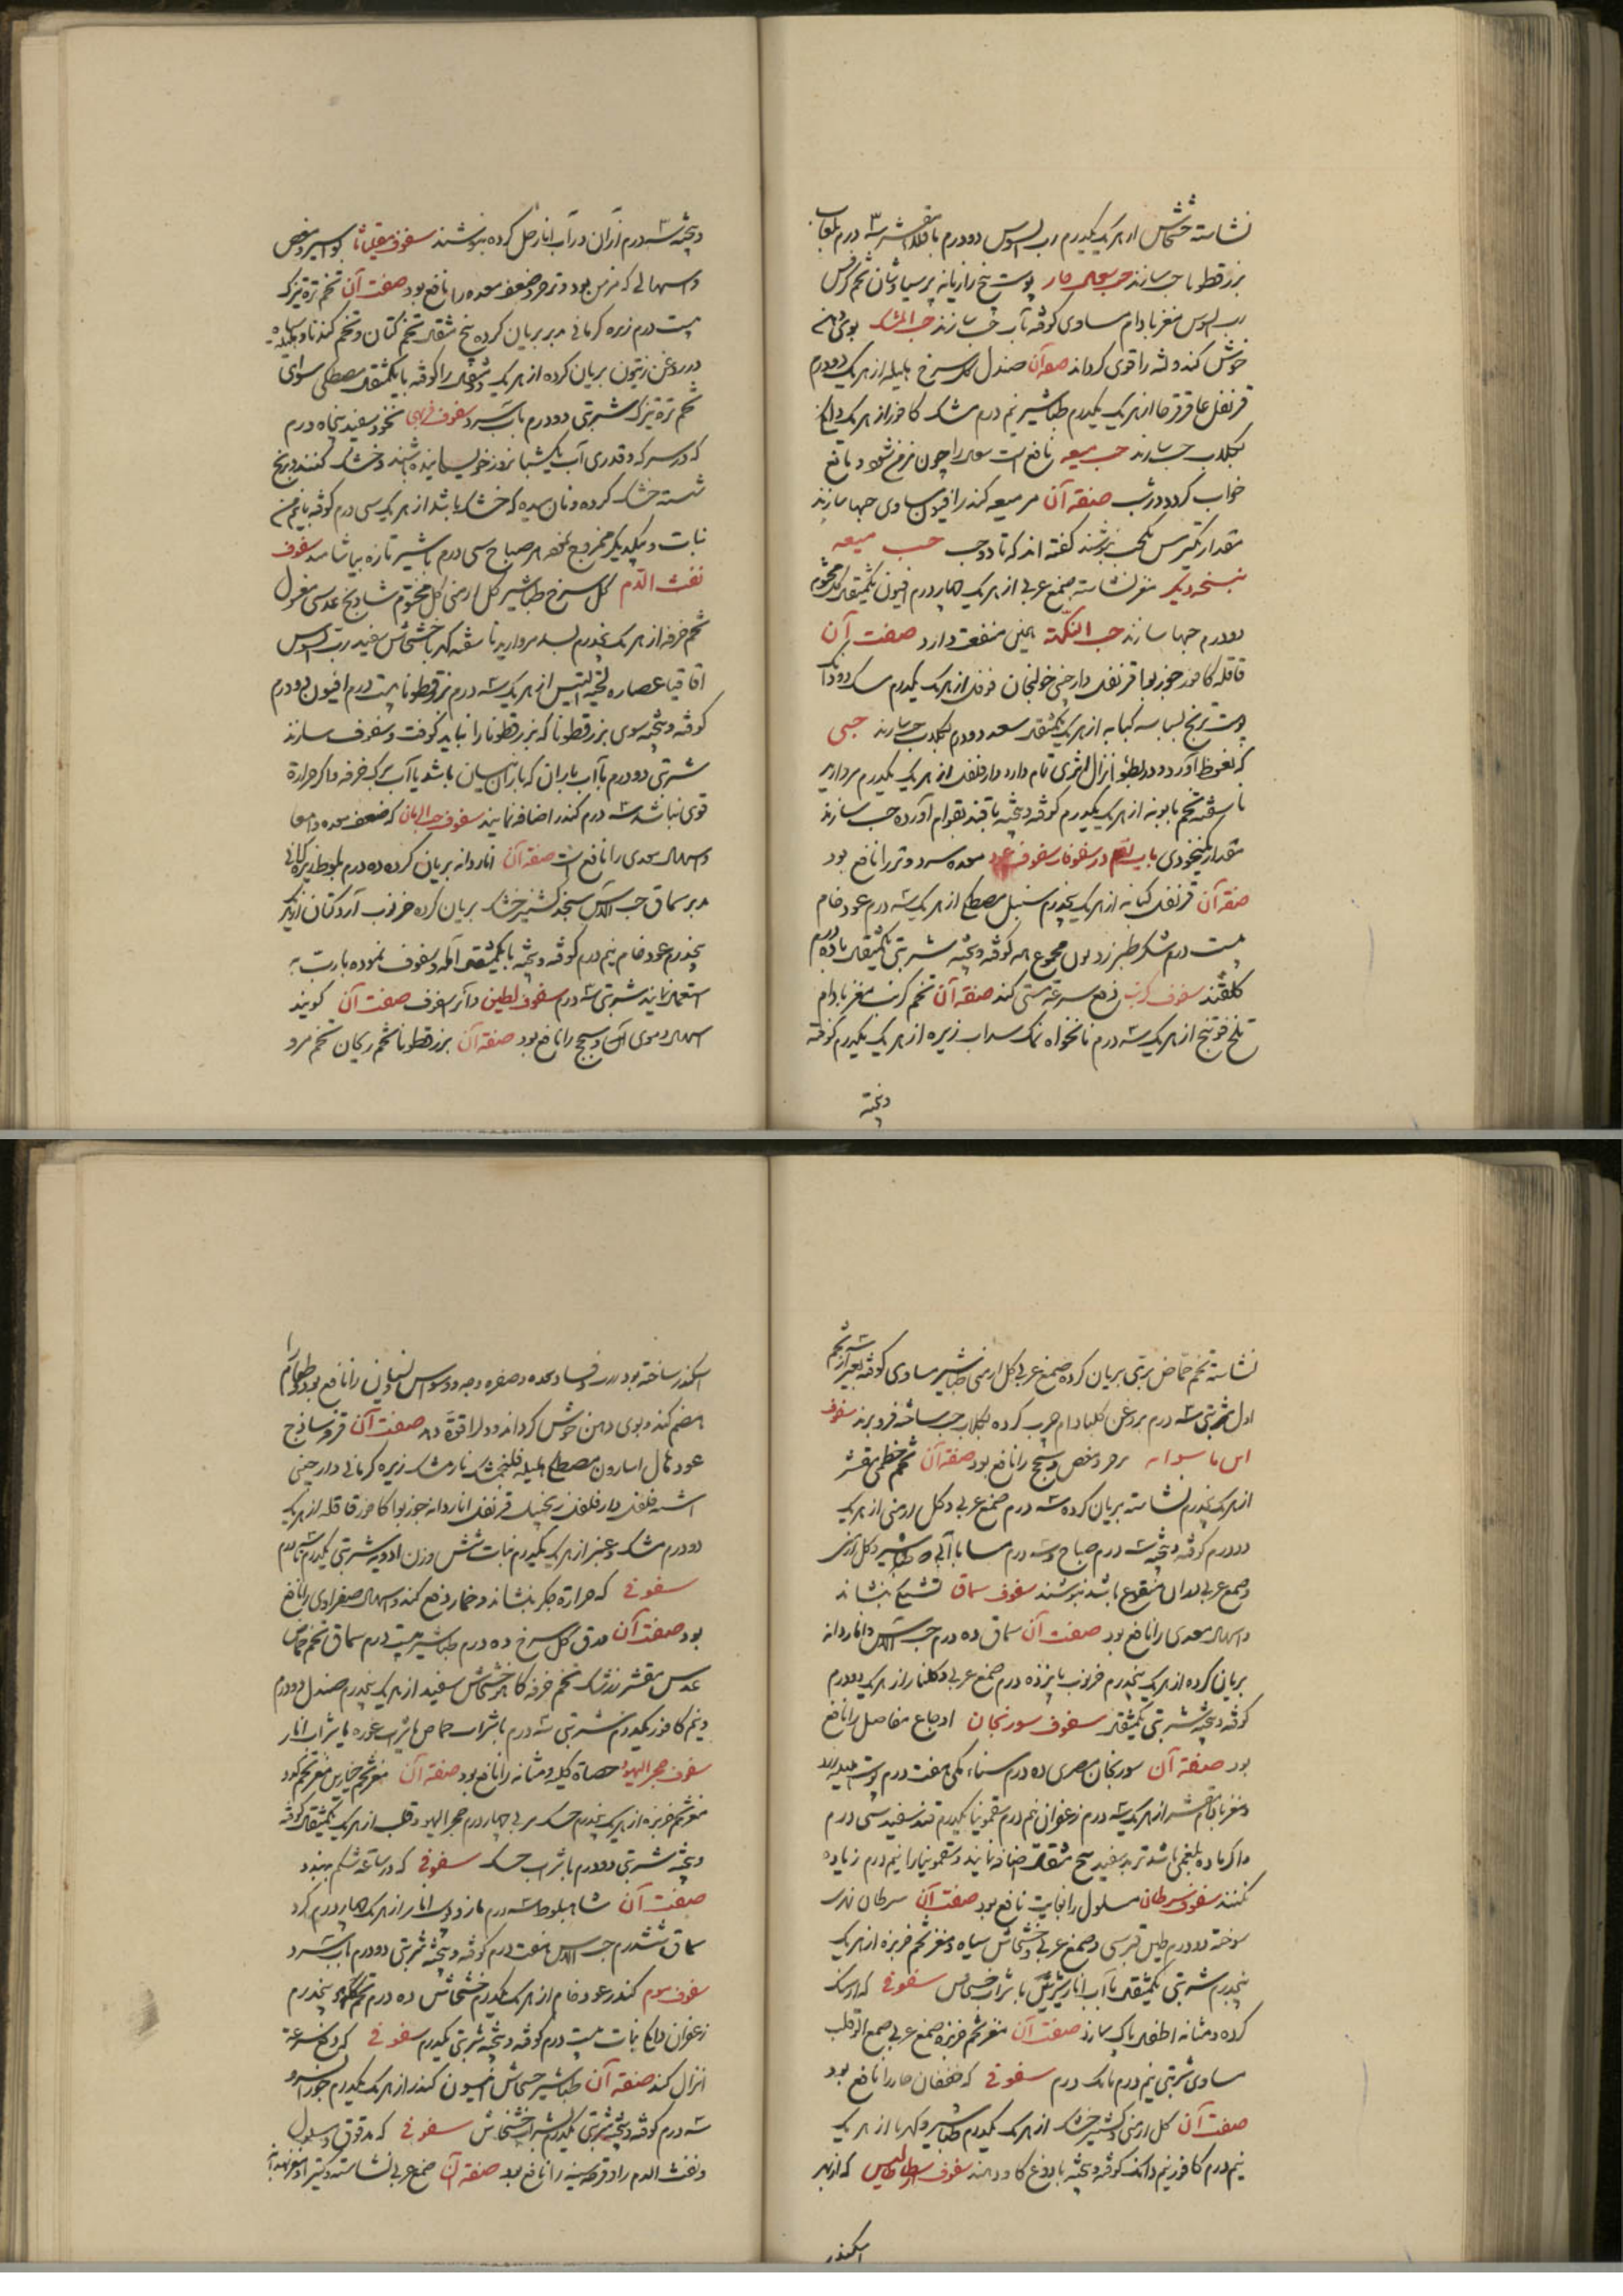 نشاسته خشخاش از هر یک یکدرم رب السوس دو درم باقلا مقشر سه درم بلعاب
بزرقطونا حب سازند حب سعال حار پوست بیخ رازیانه پرسیاوشان تخم کرفس
رب السوس مغز بادام مساوی کوفته بآب حب سازند حب المشک بوی دهن
خوش کند و لثه را قوی کرداند صفة آن صندل کل سرخ هلیله از هر یک دو درم
قرنفل عاقرقرحا از هر یک یکدرم طباشیر نیم درم مشک کافور از هر یک دانکی
بکلاب حب سازند حب میعه نافع است سعال را چون مزمن شود و مانع
خواب کردد در شب صنعة آن مر میعه کندر افیون مساوی حبها سازند
مقدار کرسنه یکحب بنوشند کفته اند که تا دو حب حب میعه
بنسخه دیکر مغز نشاسته صمغ عربی از هر یک چهار درم افیون یکمثقال کل مختوم
دو درم حبها سازند حب النکهة همین منفعت دارد صفت آن
قاقله کافور جوزبوا قرنفل دارچینی خولنجان فوفل از هر یک یکدرم مسک دو دانک
پوست ترنج بسباسه کبابه از هر یک یکمثقال سعد دو درم بکلاب حب سازند حبی
که نعوظ آورد و در بطوء انزال اثری تمام دارد دارفلفل از هر یک یکدرم مروارید
ناسفته تخم بابونه از هر یک یکدرم کوفته و پخته با قند بقوام آورده حب سازند
مقدار نخودی باب نهم در سفوفات سفوف عود معده سرد و تر را نافع بود
صفة آن قرنفل کبابه از هر یک پنجدرم سنبل مصطکی از هر یک سه درم عود خام
بیست درم شکر طبرزد بوزن مجموع همه کوفته و پخته شربتی یکمثقال با ده درم
کلقند سفوف کرنب دفع سرعة مستی کند صنعة آن تخم کرنب مغز بادام
تلخ فوتنج از هر یک سه درم نانخواه نمک سداب زیره از هر یک یکدرم کوفته
و پخته
و پخته سه درم از آن در آب انار حل کرده بنوشند سفوف مقلیاثا بواسیر و مغص
و اسهالی که مزمن بود و زحیر و ضعف معده را نافع بود صفت آن تخم تره تیزک
بیست درم زیره کرمانی مدبر بریان کرده پنج مثقال تخم کتان و تخم کندنا و هلیله سیاه
در روغن زیتون بریان کرده از هر یک دو مثقال را کوفته با یکمثقال مصطکی سوای
تخم تره تیزک شربتی دو درم باب سرد سفوف فربهی نخود سفید پنجاه درم
که در سرکه و قدری آب یکشبانروز خیسانیده باشند و خشک کنند و برنج
شسته خشک کرده و نان میده که خشک باشد از هر یک سی درم کوفته با نیم من
نبات و یکدیکر ممزوج نموده هر صباح سی درم با شیر تازه بیاشامند سفوف
نفث الدم کل سرخ طباشیر کل ارمنی کل مختوم شادنج عدسی مغسول
تخم خرفه از هر یک پنجدرم بسد مروارید ناسفته کهربا خشخاش سفید رب السوس
اقاقیا عصاره لحیة التیس از هر یک سه درم بزرقطونا بیست درم افیون دو درم
کوفته و پخته سوی بزرقطونا که بزرقطونا را نباید کوفت و سفوف سازند
شربتی دو درم با آب باران که باران نیسان باشد یا آب برک خرفه و اکر حرارة
قوی نباشد سه درم کندر اضافه نمایند سفوف حب الرمان که ضعف معده و امعا
و اسهال معدی را نافع است صفة آن اناردانه بریان کرده ده درم بلوط زیره کرمانی
مدبر سماق حب الآس سنجد کشنیز خشک بریان کرده خرنوب آرد کنار از هر یک
پنجدرم عود خام نیم درم کوفته و پخته با یکمثقال آمله و سفوف نموده بارب به
استعمال نمایند شربتی سه درم سفوف الطین و آنرا سفوف صفت آن کویند
اسهال دموی و سحج را نافع بود صفة آن بزرقطونا تخم ریحان تخم مرو
نشاسته تخم حماض بری بریان کرده صمغ عربی کل ارمنی طباشیر مساوی کوفته بغیر از سه تخم
اول شربتی سه درم بروغن کل بادام چرب کرده بکلاب حب ساخته فرو برند سفوف
زحیر و مغص و سحج را نافع بود صفة آن تخم خطمی مقشر
از هر یک پنجدرم نشاسته بریان کرده سه درم صمغ عربی و کل ارمنی از هر یک
دو درم کوفته و پخته سه درم صباح و سه درم مسا با آبی که طباشیر و کل ارمنی
و صمغ عربی در آن منقوع باشد بنوشند سفوف سماق تشنکی بنشاند
و اسهال معدی را نافع بود صفت آن سماق ده درم حب الآس و اناردانه
بریان کرده از هر یک پنجدرم خرنوب پانزده درم صمغ عربی و کلنار از هر یک دو درم
کوفته و پخته شربتی یکمثقال سفوف سورنجان اوجاع مفاصل را نافع
بود صفة آن سورنجان مصری ده درم سناء مکی هفت درم پوست هلیله زرد
و مغز بادام مقشر از هر یک سه درم زعفران نیم درم سقمونیا یکدرم قند سفید سی درم
و اکر ماده بلغمی باشد تربد سفید پنج مثقال اضافه نمایند و سقمونیا را نیم درم زیاده
نکنند سفوف سرطان مسلول را بغایت نافع بود صفت آن سرطان نهری
سوخته دو درم طین قبرسی و صمغ عربی و خشخاش سیاه و مغز تخم خربزه از هر یک
پنجدرم شربتی یکمثقال با آب انار شیرین یا شراب خشخاش سفوفی که از سنک
کرده و مثانه اطفال پاک سازد صفت آن مغز تخم خربزه صمغ عربی صمغ الو قلب
مساوی شربتی نیم درم تا یک درم سفوفی که خفقان حار را نافع بود
صفت آن کل ارمنی و کشنیز خشک از هر یک یکدرم طباشیر و کهربا از هر یک
نیم درم کافور نیم دانک کوفته و پخته با دوغ کاو دهند سفوف ارسطاطالیس که از بهر
اسکندر
اسکندر ساخته بود و فساد معده و صفره وجه و وسواس و نسیان را نافع بود و طعام را
هضم کند و بوی دهن خوش کرداند و دل را قوة دهد صفت آن قرفه ساذج
عود اسارون مصطکی هلیله فلنجمشک نارمشک زیره کرمانی دارچینی
اشنه فلفل دارفلفل زنجبیل قرنفل اناردانه جوزبوا کافور قاقله از هر یک
دو درم مشک و عنبر از هر یک یکدرم نبات شش وزن ادویه شربتی یکدرم تا سه درم
سفوفی که حرارة جکر بنشاند و خمار دفع کند و اسهال صفراوی را نافع
بود صفت آن ورق کل سرخ ده درم طباشیر بیست درم سماق تخم حماض
عدس مقشر زرشک تخم خرفه کاهو خشخاش سفید از هر یک پنجدرم صندل دو درم
و نیم کافور یکدرم شربتی سه درم باشراب حماض یا شراب غوره یا شراب انار
سفوف حجر الیهود حصاة کلیه و مثانه را نافع بود صفة آن مغز تخم خیارین مغز تخم کدو
مغز تخم خربزه از هر یک پنجدرم حسک مربی چهار درم حجر الیهود و قلب از هر یک یکمثقال کوفته
و پخته شربتی دو درم با شراب حسک سفوفی که در ساعة شکم ببندد
صفت آن شاهبلوط سه درم مازو و پوست انار از هر یک چهار درم کرد
سماق ششدرم حب الآس هفت درم کوفته و پخته شربتی دو درم باب سرد
سفوف سوم کندر عود خام از هر یک یکدرم خشخاش ده درم پنجدرم
زعفران دانکی نبات بیست درم کوفته و پخته شربتی یکدرم سفوفی که دفع سرعة
انزال کند صفة آن طباشیر خشخاش افیون کندر از هر یک یکدرم جوز السرو
سه درم کوفته و پخته شربتی یکدرم بشراب خشخاش سفوفی که مدقوق و مسلول
و نفث الدم را و قرحه سینه را نافع بود صفة آن صمغ عربی نشاسته کتیرا مغز بهدانه